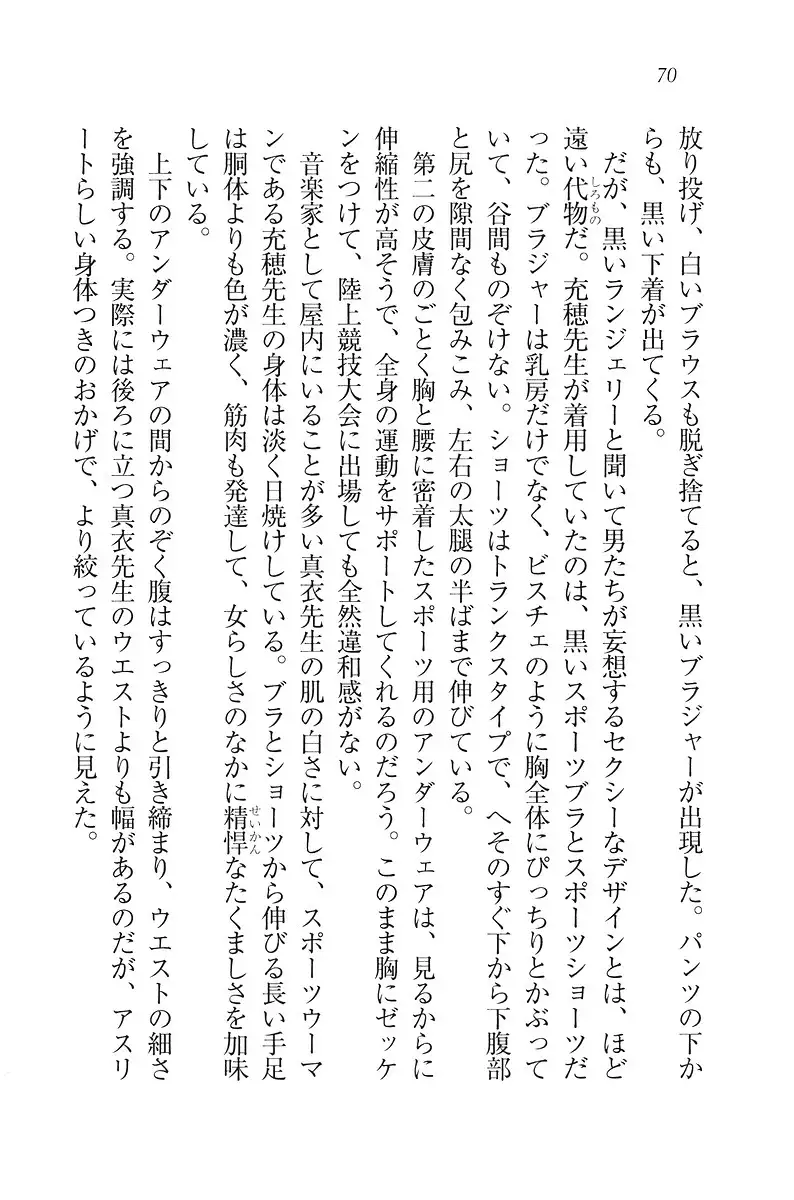 70
放り投げ、白いブラウスも脱ぎ捨てると、黒いブラジャーが出現した。パンツの下か
らも、黒い下着が出てくる。
だが、黒いランジェリーと聞いて男たちが妄想するセクシーなデザインとは、ほど
遠い代物だ。充穂先生が着用していたのは、黒いスポーツブラとスポーツショーツだ
った。ブラジャーは乳房だけでなく、ビスチェのように胸全体にぴっちりとかぶって
いて、谷間ものぞけない。ショーツはトランクスタイプで、へそのすぐ下から下腹部
と尻を隙間なく包みこみ、左右の太腿の半ばまで伸びている。
第二の皮膚のごとく胸と腰に密着したスポーツ用のアンダーウェアは、見るからに
伸縮性が高そうで、全身の運動をサポートしてくれるのだろう。このまま胸にゼッケ
ンをつけて、陸上競技大会に出場しても全然違和感がない。
音楽家として屋内にいることが多い真衣先生の肌の白さに対して、スポーツウーマ
ンである充穂先生の身体は淡く日焼けしている。ブラとショーツから伸びる長い手足
は胴体よりも色が濃く、筋肉も発達して、女らしさのなかに精悍なたくましさを加味
している。
上下のアンダーウェアの間からのぞく腹はすっきりと引き締まり、ウエストの細さ
を強調する。実際には後ろに立つ真衣先生のウエストよりも幅があるのだが、アスリ
ートらしい身体つきのおかげで、より絞っているように見えた。
しろもの
せいかん